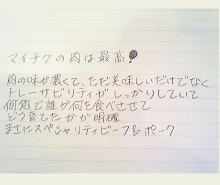 マイチクの肉は最高!
肉の味が濃くて、ただ美味しいだけでなく
トレーサビリティがしっかりしていて
何処で誰が何を食べさせて
どう育てたかが明確
まさにスペシャリティビーフ&ポーク